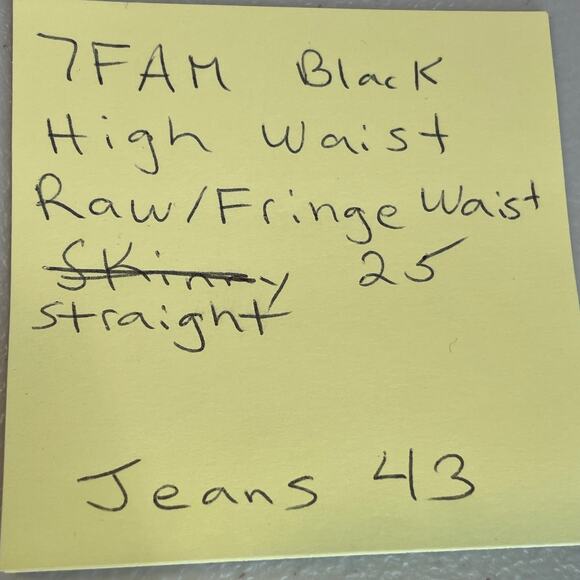 7FAM Black
High Waist
Raw/Fringe Waist
Skinny 25
straight
Jeans 43